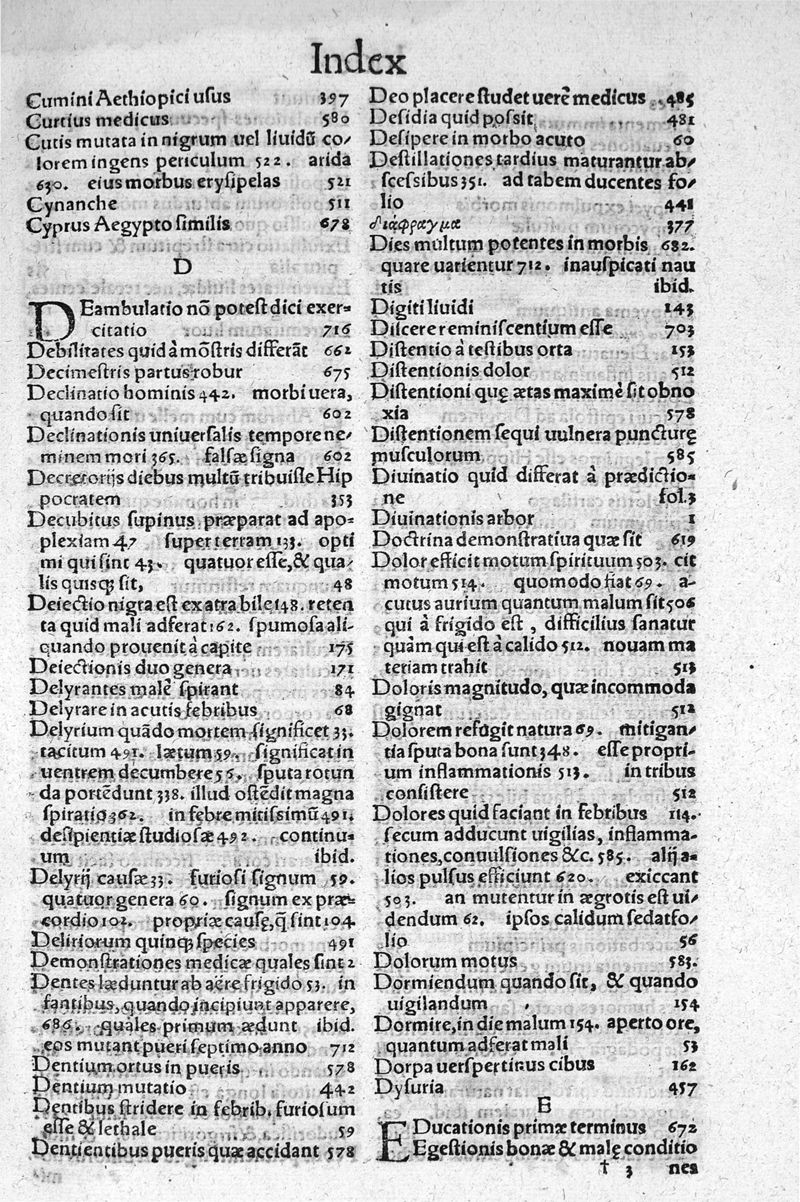 Index
Cumini Aethiopici usus 397
Curtius medicus 580
Cutis mutata in nigrum uel liuidū co/
lorem ingens periculum 522. arida
630. eius morbus erysipelas 521
Cynanche 511
Cyprus Aegypto similis 678
D
DEambulatio nō potest dici exer-
citatio 716
Debilitates quid à mōstris differāt 662
Decimestris partus robur 675
Declinatio hominis 442. morbi uera,
quando sit 602
Declinationis uniuersalis tempore ne/
minem mori 365. falsæ signa 602
Decretorijs diebus multū tribuisse Hip
pocratem 353
Decubitus supinus præparat ad apo-
plexiam 47 super terram 133. opti
mi qui sint 43. quatuor esse, & qua/
lis quisq; sit, 48
Deiectio nigra est ex atra bile 148. reten
ta quid mali adferat 162. spumosa ali-
quando prouenit à capite 175
Deiectionis duo genera 171
Delyrantes malè spirant 84
Delyrare in acutis febribus 68
Delyrium quādo mortem significet 33.
tacitum 491. lætum 59. significat in
uentrem decumbere 56. sputa rotun
da portēdunt 338. illud ostēdit magna
spiratio 362. in febre mitissimū 491.
desipientiæ studiosæ 492. continu-
um ibid.
Delyrij causæ 33. furiosi signum 59.
quatuor genera 60. signum ex præ-
cordio 102. propriæ causę, q̄ sint 104
Deliriorum quinq; species 491
Demonstrationes medicæ quales sint 2
Dentes læduntur ab aëre frigido 53. in
fantibus, quando incipiunt apparere,
686. quales primum ædunt ibid.
eos mutant pueri septimo anno 712
Dentium ortus in pueris 578
Dentium mutatio 442
Dentibus stridere in febrib. furiosum
esse & lethale 59
Dentientibus pueris quæ accidant 578
Deo placere studet uerè medicus 485
Desidia quid possit 481
Desipere in morbo acuto 60
Destillationes tardius maturantur ab/
scessibus 351. ad tabem ducentes fo/
lio 441
διάφραγμα 377
Dies multum potentes in morbis 682.
quare uarientur 712. inauspicati nau
tis ibid.
Digiti liuidi 143
Discere reminiscentium esse 703
Distentio à testibus orta 153
Distentionis dolor 512
Distentioni quę ætas maximè sit obno
xia 578
Distentionem sequi uulnera puncturę
musculorum 585
Diuinatio quid differat à prædictio-
ne fol. 3
Diuinationis arbor 1
Doctrina demonstratiua quæ sit 619
Dolor efficit motum spirituum 503. cit
motum 514. quomodo fiat 69. a-
cutus aurium quantum malum sit 506
qui à frigido est, difficilius sanatur
quàm qui est à calido 512. nouam ma
teriam trahit 513
Doloris magnitudo, quæ incommoda
gignat 512
Dolorem refugit natura 69. mitigan/
tia sputa bona sunt 348. esse propri-
um inflammationis 513. in tribus
consistere 512
Dolores quid faciant in febribus 114.
secum adducunt uigilias, inflamma-
tiones, conuulsiones &c. 585. alij a-
lios pulsus efficiunt 620. exiccant
503. an mutentur in ægrotis est ui/
dendum 62. ipsos calidum sedat fo/
lio 56
Dolorum motus 583.
Dormiendum quando sit, & quando
uigilandum 154
Dormire, in die malum 154. aperto ore,
quantum adferat mali 53
Dorpa uerspertinus cibus 162
Dysuria 457
E
EDucationis primæ terminus 672
Egestionis bonæ & malę conditio
† 3 nes